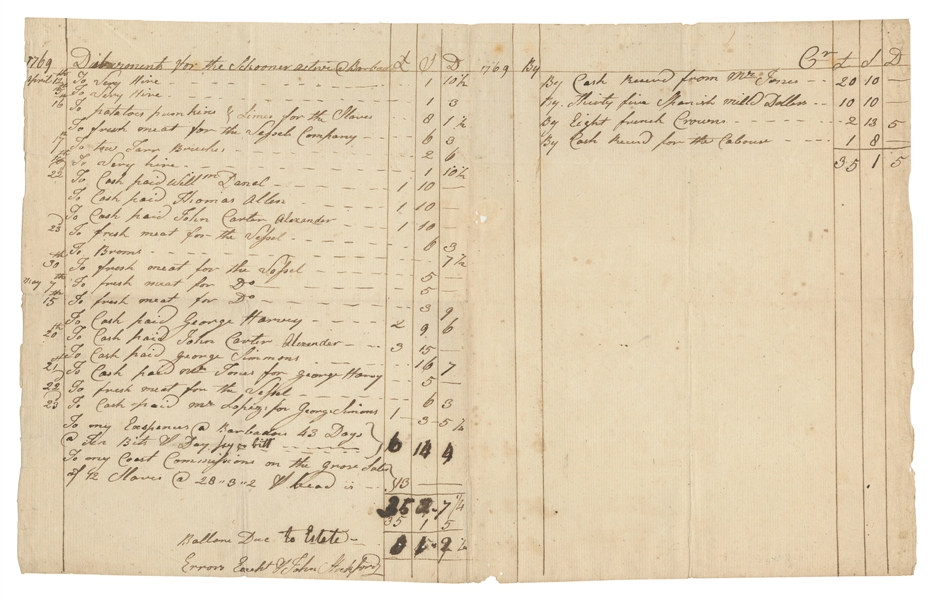 1769 Disbursment for the Schooner active @ Barbados £ S D
April 12th To Very Hire 1 10½
To Very Hire 1 3
16 To potatoes pumkins & Limes for the Slaves 8 1½
To fresh meat for the Vessels Company 6 3
17 To two Tarr Brushes 2 6
To Very hire 1 10½
22 To Cash paid Willm Danal 1 10 —
To Cash paid Thomas Allen 1 10 —
To Cash paid John Carter Alexander 1 10 —
23 To fresh meat for the Vessel 6 3
To Broms 7½
30th To fresh meat for the Vessel 5 —
May 7th To fresh meat for Do 5 —
15th To fresh meat for Do 3 9
To Cash paid George Harvey 2 9 6
20th To Cash paid John Carter Alexander 3 15 —
To Cash paid george Simmons 16 7
21 To Cash paid Mr Jones for george Harvy 5 —
22 To fresh meat for the Vessel 6 3
23 To Cash paid mr Lopez for George Simons 1 3 5½
To my Exspences @ Barbadoes 43 Days
@ Ten Bits ⅌ Day 6 14 4
To my Coast Commissions on the grose Sales
of 92 Slaves @ 28"3"2 ⅌ head is 13 — —
35 7¼
35 1 5
Ballance Due to Estate 2¼
Errors Excebt ⅌ John
1769 By Cr £ S D
By Cash Recived from Mr Jones 20 10 —
By Thirty five Spanish milld Dollars 10 10 —
By Eight french Crowns 2 13 5
By Cash Recived for the Cabouse 1 8 —
35 1 5